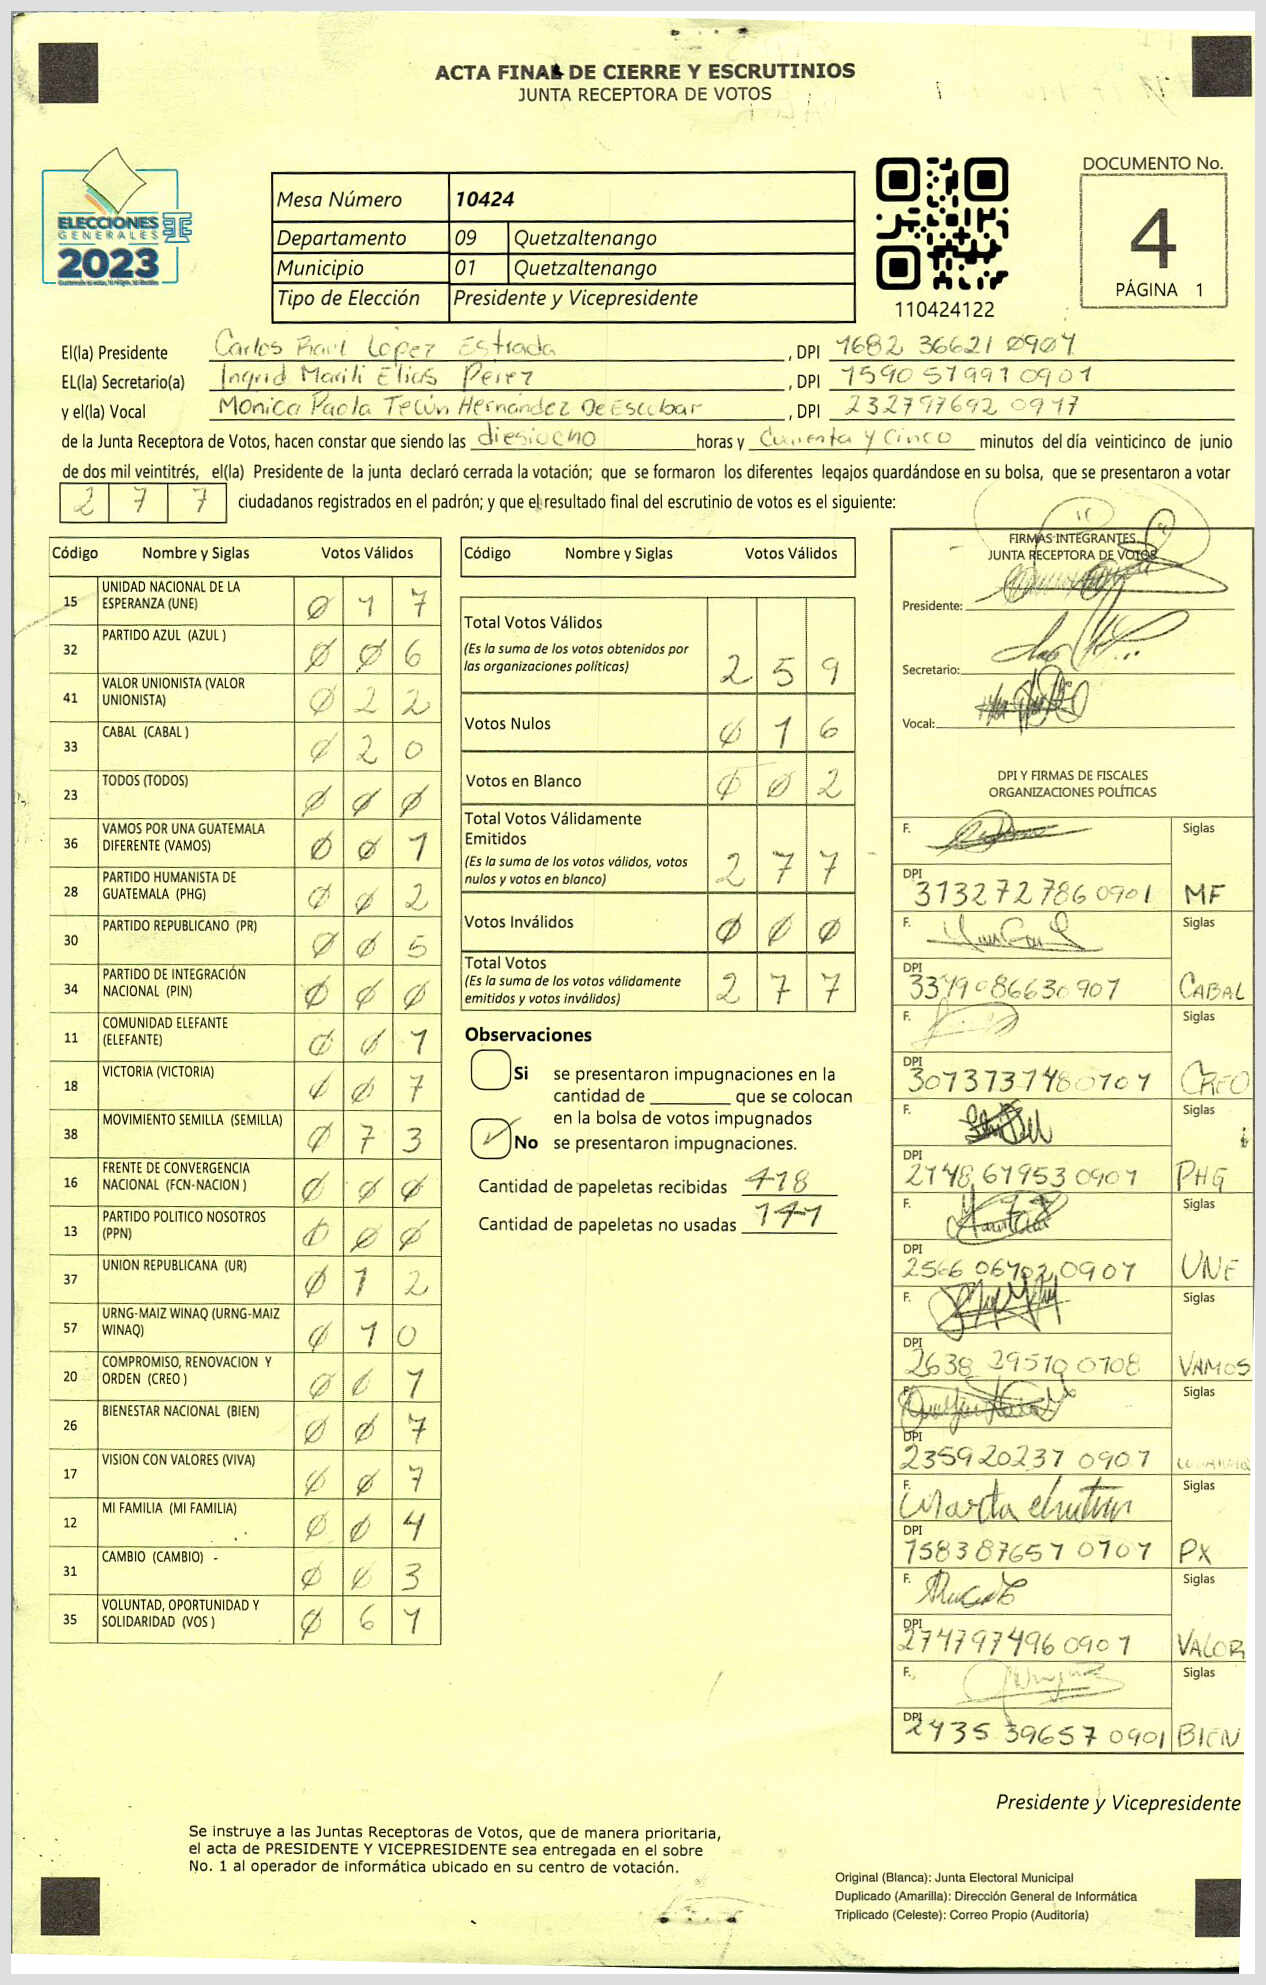 ACTA FINAL DE CIERRE Y ESCRUTINIOS
JUNTA RECEPTORA DE VOTOS
ELECCIONES
GENERALES
2023
Mesa Número 10424
Departamento 09 Quetzaltenango
Municipio 01 Quetzaltenango
Tipo de Elección Presidente y Vicepresidente
110424122
DOCUMENTO No.
4
PÁGINA 1
El(la) Presidente Carlos Raul López Estrada, DPI 1682 36621 0901
EL(la) Secretario(a) Ingrid Marili Elias Perez, DPI 1590 51991 0901
y el(la) Vocal Monica Paola Tecún Hernández De Escobar, DPI 232797692 0917
de la Junta Receptora de Votos, hacen constar que siendo las diesiocho horas y Cuarenta y Cinco minutos del día veinticinco de junio
de dos mil veintitrés, el(la) Presidente de la junta declaró cerrada la votación; que se formaron los diferentes legajos guardándose en su bolsa, que se presentaron a votar
2 7 7 ciudadanos registrados en el padrón; y que el resultado final del escrutinio de votos es el siguiente:
Código Nombre y Siglas Votos Válidos
15 UNIDAD NACIONAL DE LA ESPERANZA (UNE) 0 1 7
32 PARTIDO AZUL (AZUL ) 0 0 6
41 VALOR UNIONISTA (VALOR UNIONISTA) 0 2 2
33 CABAL (CABAL ) 0 2 0
23 TODOS (TODOS) 0 0 0
36 VAMOS POR UNA GUATEMALA DIFERENTE (VAMOS) 0 0 1
28 PARTIDO HUMANISTA DE GUATEMALA (PHG) 0 0 2
30 PARTIDO REPUBLICANO (PR) 0 0 5
34 PARTIDO DE INTEGRACIÓN NACIONAL (PIN) 0 0 0
11 COMUNIDAD ELEFANTE (ELEFANTE) 0 0 1
18 VICTORIA (VICTORIA) 0 0 7
38 MOVIMIENTO SEMILLA (SEMILLA) 0 7 3
16 FRENTE DE CONVERGENCIA NACIONAL (FCN-NACION ) 0 0 0
13 PARTIDO POLITICO NOSOTROS (PPN) 0 0 0
37 UNION REPUBLICANA (UR) 0 1 2
57 URNG-MAIZ WINAQ (URNG-MAIZ WINAQ) 0 1 0
20 COMPROMISO, RENOVACION Y ORDEN (CREO ) 0 0 1
26 BIENESTAR NACIONAL (BIEN) 0 0 7
17 VISION CON VALORES (VIVA) 0 0 7
12 MI FAMILIA (MI FAMILIA) 0 0 4
31 CAMBIO (CAMBIO) 0 0 3
35 VOLUNTAD, OPORTUNIDAD Y SOLIDARIDAD (VOS ) 0 6 1
Código Nombre y Siglas Votos Válidos
Total Votos Válidos
(Es la suma de los votos obtenidos por
las organizaciones políticas) 2 5 9
Votos Nulos 0 1 6
Votos en Blanco 0 0 2
Total Votos Válidamente
Emitidos
(Es la suma de los votos válidos, votos
nulos y votos en blanco) 2 7 7
Votos Inválidos 0 0 0
Total Votos
(Es la suma de los votos válidamente
emitidos y votos inválidos) 2 7 7
Observaciones
Si se presentaron impugnaciones en la
cantidad de ________ que se colocan
en la bolsa de votos impugnados
✓ No se presentaron impugnaciones.
Cantidad de papeletas recibidas 418
Cantidad de papeletas no usadas 141
FIRMAS INTEGRANTES
JUNTA RECEPTORA DE VOTOS
Presidente:
Secretario:
Vocal:
DPI Y FIRMAS DE FISCALES
ORGANIZACIONES POLÍTICAS
F. Siglas
DPI 313272786 0901 MF
F. Siglas
DPI 3379086630907 CABAL
F. Siglas
DPI 3073737480101 CREO
F. Siglas
DPI 2148 61953 0901 PHG
F. Siglas
DPI 2566 06702 0901 UNE
F. Siglas
DPI 2638 29510 0108 VAMOS
F. Siglas
DPI 235920237 0901
F. Marta Siglas
DPI 1583 87657 0101 PX
F. Siglas
DPI 274797496 0901 VALOR
F. Siglas
DPI 2435 39657 0901 BIEN
Presidente y Vicepresidente
Se instruye a las Juntas Receptoras de Votos, que de manera prioritaria,
el acta de PRESIDENTE Y VICEPRESIDENTE sea entregada en el sobre
No. 1 al operador de informática ubicado en su centro de votación.
Original (Blanca): Junta Electoral Municipal
Duplicado (Amarilla): Dirección General de Informática
Triplicado (Celeste): Correo Propio (Auditoría)